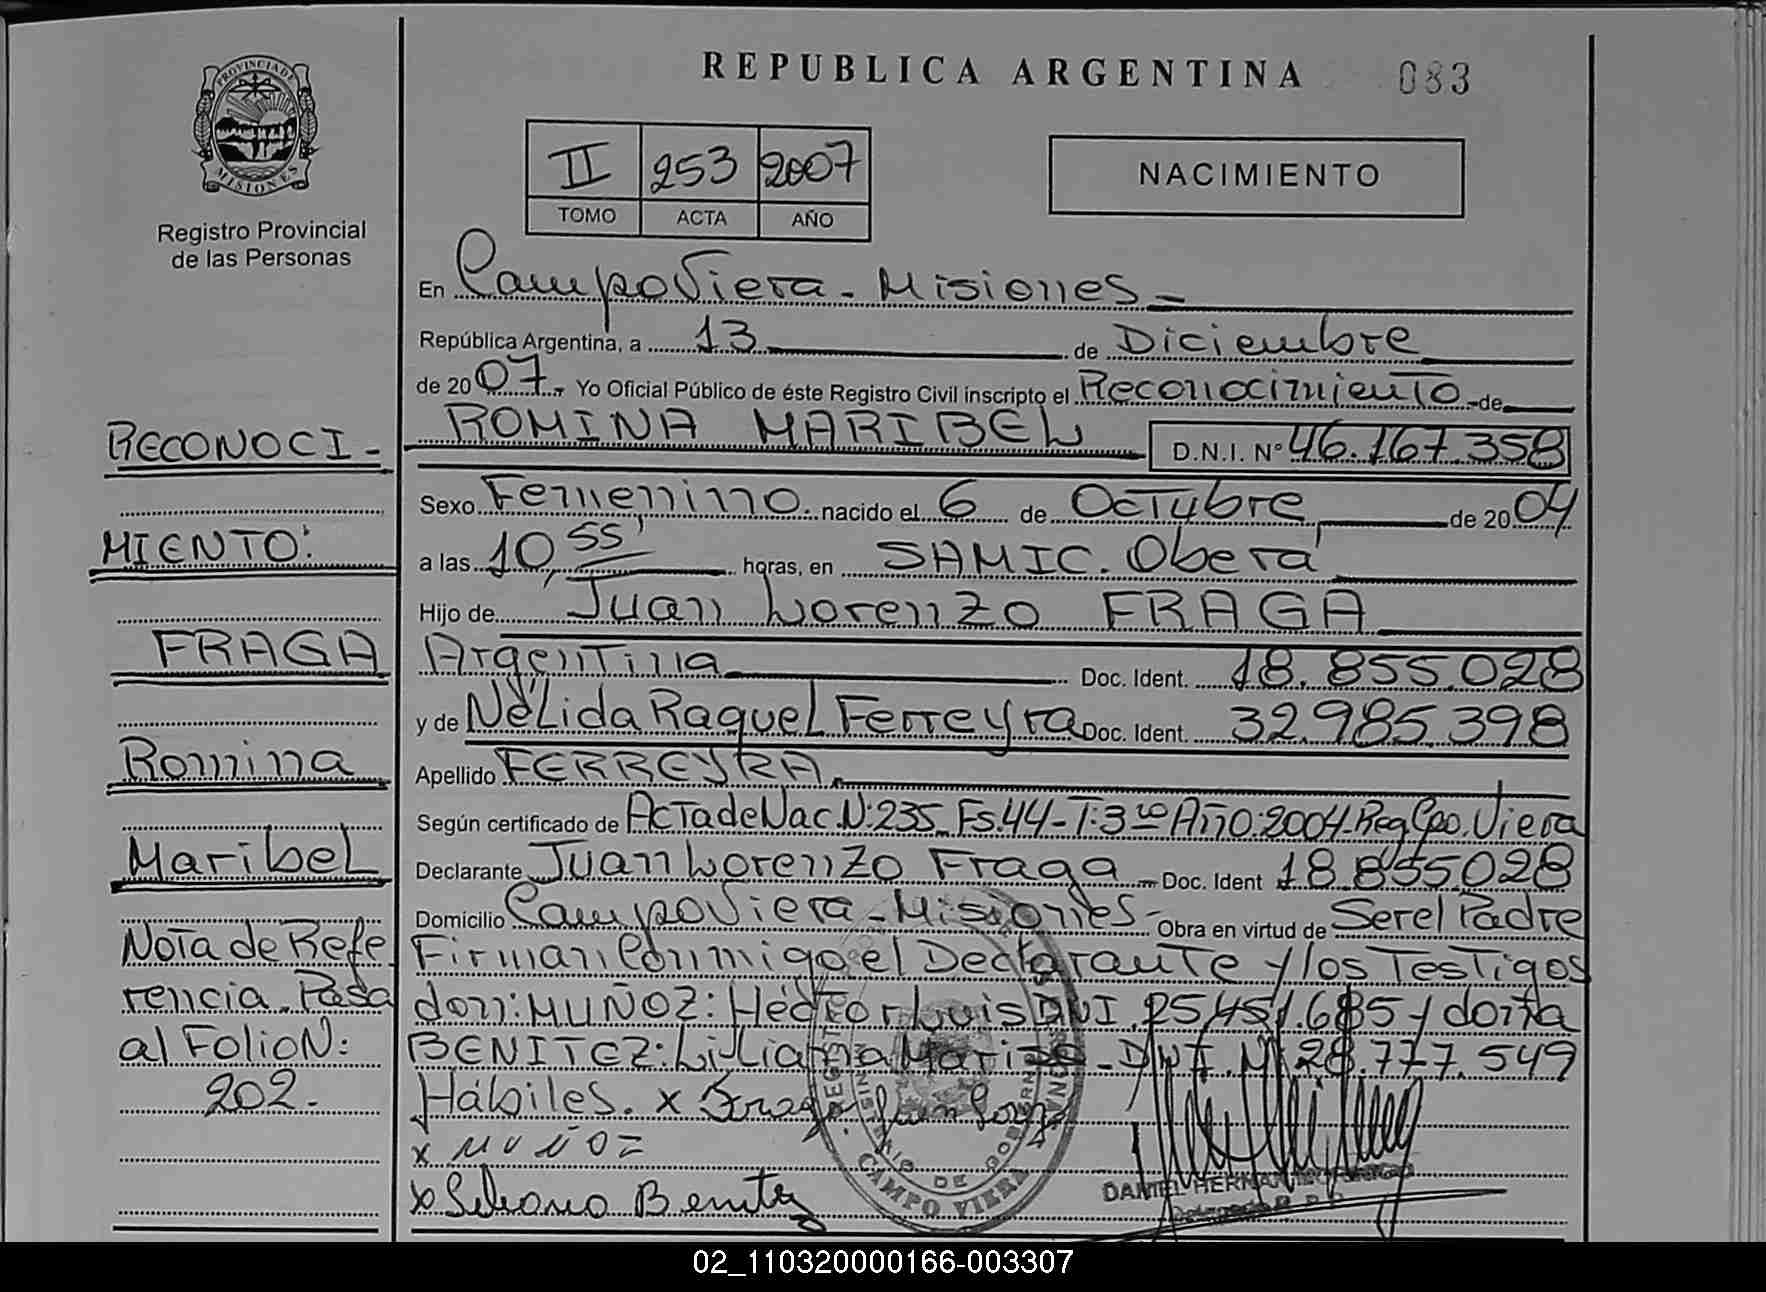 REPUBLICA ARGENTINA 083
PROVINCIA DE
MISIONES
Registro Provincial
de las Personas
II 253 2007
TOMO ACTA AÑO
NACIMIENTO
En Campo Viera - Misiones -
República Argentina, a 13 de Diciembre
de 2007. Yo Oficial Público de éste Registro Civil inscripto el Reconocimiento de
ROMINA MARIBEL D.N.I. Nº 46.167.358
Sexo Femenino. nacido el 6 de Octubre de 2004
a las 10,55' horas, en SAMIC. Oberá
Hijo de Juan Lorenzo FRAGA
Argentina Doc. Ident. 18.855.028
y de Nélida Raquel Ferreyra Doc. Ident. 32.985.398
Apellido FERREYRA
Según certificado de Acta de Nac. N:235 Fs.44 - T:3ro Año:2004 - Reg. Cpo. Viera
Declarante Juan Lorenzo Fraga Doc. Ident 18.855.028
Domicilio Campo Viera - Misiones - Obra en virtud de Ser el Padre
Firman Conmigo el Declarante y los Testigos
don: MUÑOZ: Héctor Luis DNI. 25.451.685 y doña
BENITEZ: Liliana - DNI. Nº 28.777.549
Hábiles. x Fraga Juan
x MUÑOZ
x Benitez
RECONOCI -
MIENTO:
FRAGA
Romina
Maribel
Nota de Refe
rencia. Pasa
al Folio N:
202.
CAMPO VIERA
DANIEL HERNAN
02_110320000166-003307